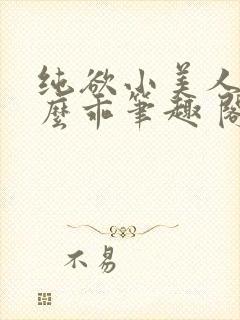 纯欲小美人
麼乖笔趣阁
不易